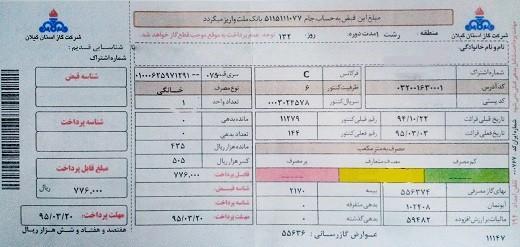 مبلغ این قبض به حساب جام ۵۱۱۵۱۱۱۰۷۷ بانک ملت واریز میگردد
شرکت گاز استان گیلان
منطقه رشت
مدت دوره: ۱۳۲ روز
توجه: عدم پرداخت به موقع موجب قطع گاز خواهد شد.
شرکت گاز استان گیلان
نام و نام خانوادگی:
شناسایی قدیم:
شماره اشتراک
شماره اشتراک
فرکانس C
سری قبض ۰۷۵
۰۱۰۰۰۶۲۵۹۷۱۲۹۱
کد آدرس ۰۳۲۰۰۱۶۳۰۰۰۱
ظرفیت کنتور ۶
نوع مصرف خانگی
شناسه قبض
کد پستی
سریال کنتور ۰۰۰۳۰۲۲۵۷۸
تعداد واحد ۱
تاریخ قبلی قرائت ۹۴/۱۰/۲۲
رقم قبلی کنتور ۱۱۲۷۹
مانده بدهی ۰
شناسه پرداخت
تاریخ فعلی قرائت ۹۵/۰۳/۰۳
رقم فعلی کنتور ۱۴۴
بدهی ۰
مصرف به متر مکعب
مانده هزار ریال ۴۳۵
کم مصرف
مصرف متعارف
پر مصرف
کسر هزار ریال ۵۰۵
مبلغ قابل پرداخت
قابل پرداخت ۷۷۶.۰۰۰
۷۷۶.۰۰۰ ریال
بهای گاز مصرفی ۵۵۶۳۷۴
بیمه ۲۱۷۰
شناسه قبض:
آبونمان ۱۰۲۲۰۸
بدهی متفرقه ۰
شناسه پرداخت:
مالیات بر ارزش افزوده ۵۹۴۸۲
بدهی گذشته ۰
مهلت پرداخت: ۹۵/۰۳/۲۰
مهلت پرداخت: ۹۵/۰۳/۲۰
۱۱۱۴۷
عوارض گازرسانی: ۵۵۶۳۶
هفتصد و هفتاد و شش هزار ریال